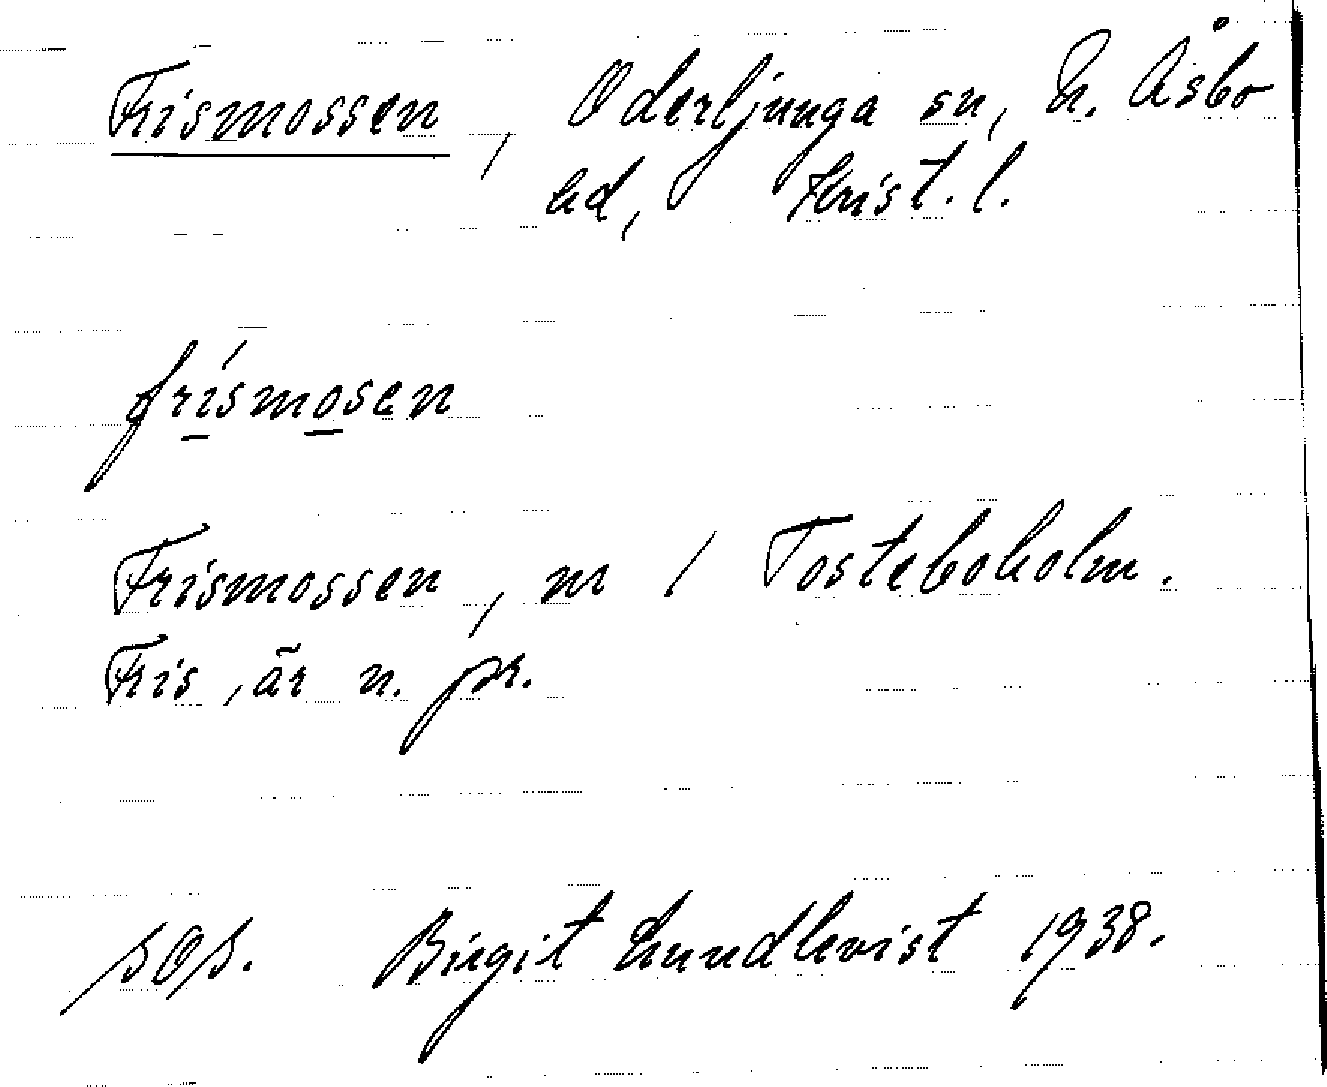 Frismossen, Oderljunga sn, N. Åsbo
hd, Krist. l.
frismosen
Frismossen, m / Tosteboholm.
Fris, är n. pr.
sOs. Birgit Lundkvist 1938.